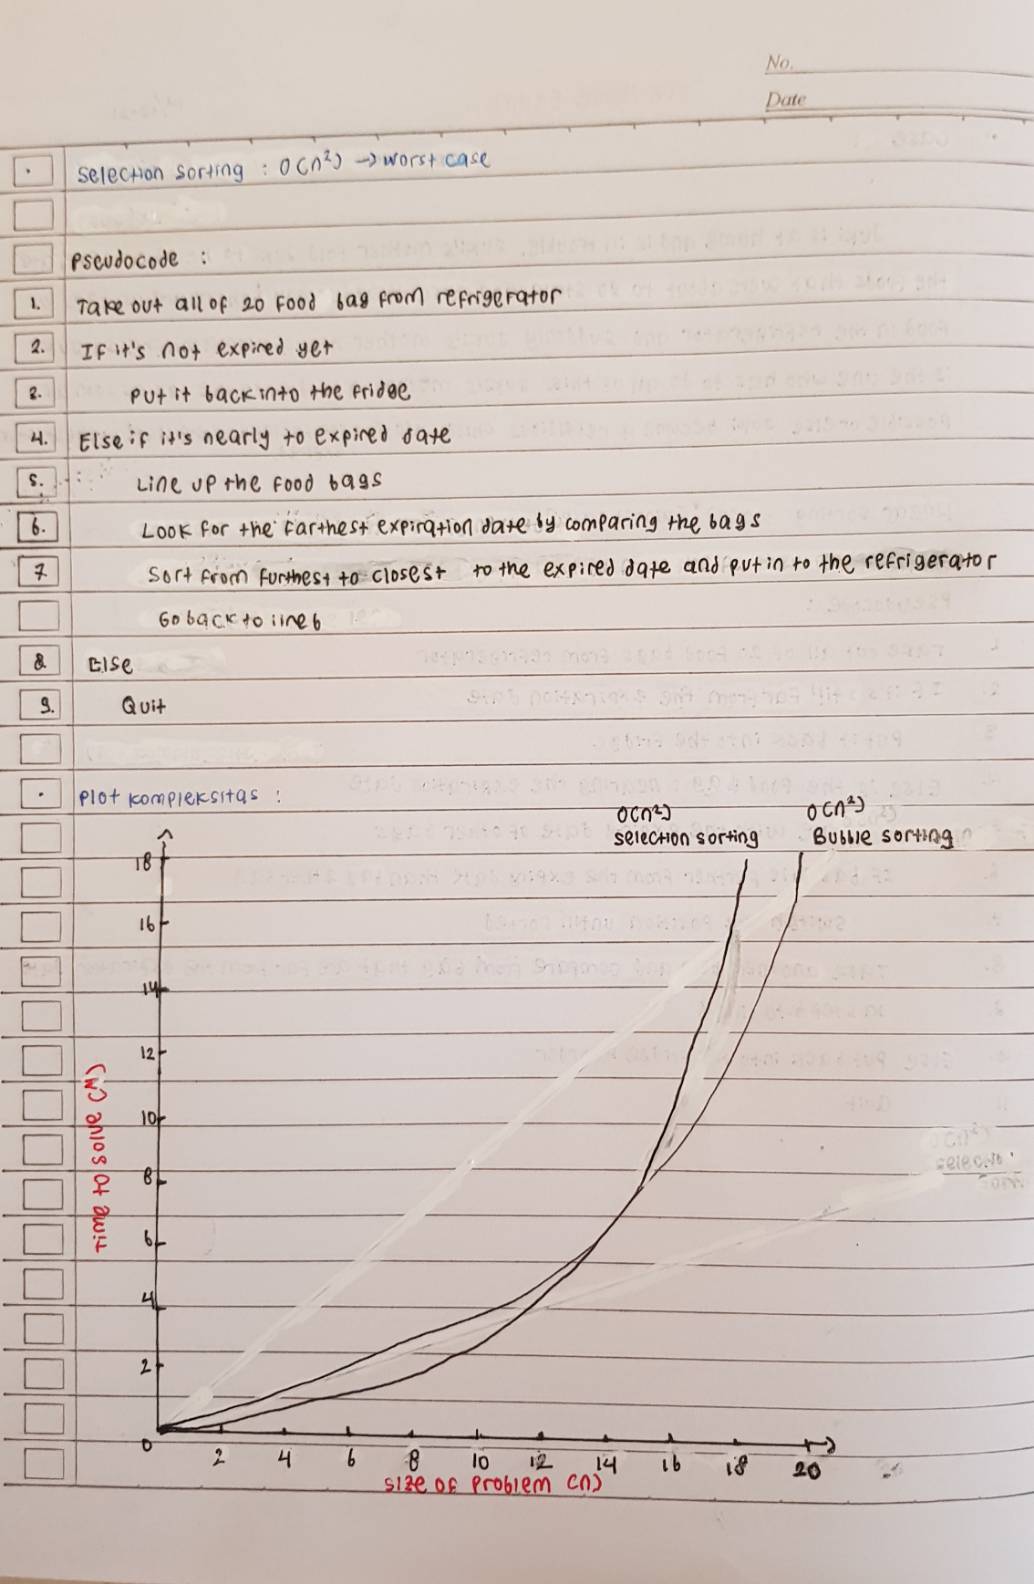 No.
Date
Selection Sorting : O(n²) → worst case
Pseudocode :
1. Take out all of 20 food bag from refrigerator
2. If it's not expired yet
3. Put it back into the fridge
4. Else if it's nearly to expired date
5. Line up the food bags
6. Look for the farthest expiration date by comparing the bags
7 Sort from furthest to closest to the expired date and put in to the refrigerator
Go back to line 6
8. Else
9. Quit
Plot kompleksitas :
O(n²) O(n²)
selection sorting Bubble sorting
18
16
14
12
10
8
6
4
2
0
time to solve (M)
2 4 6 8 10 12 14 16 18 20
size of problem (n)